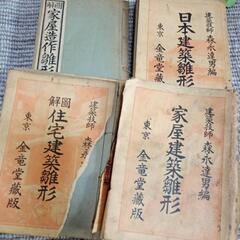 解圖
家屋造作雛形
建築技師 森永達男編
日本建築雛形
東京 金竜堂藏版
建築技師 森
解圖
住宅建築雛形
東京 金竜堂藏版
建築技師 森永達男編
家屋建築雛形
東京 金竜堂藏版